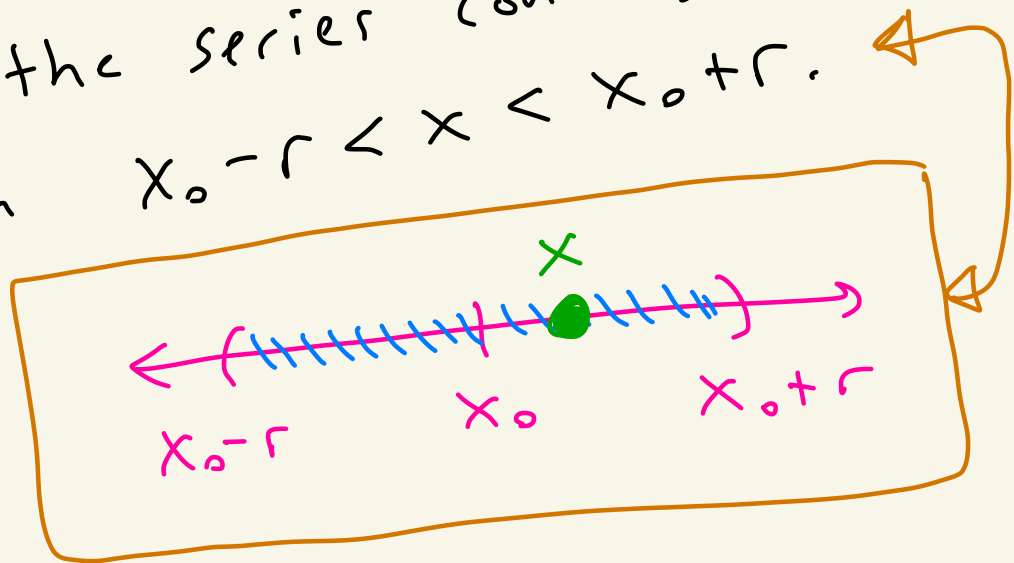 the series
x₀-r < x < x₀+r.
x
x₀-r x₀ x₀+r